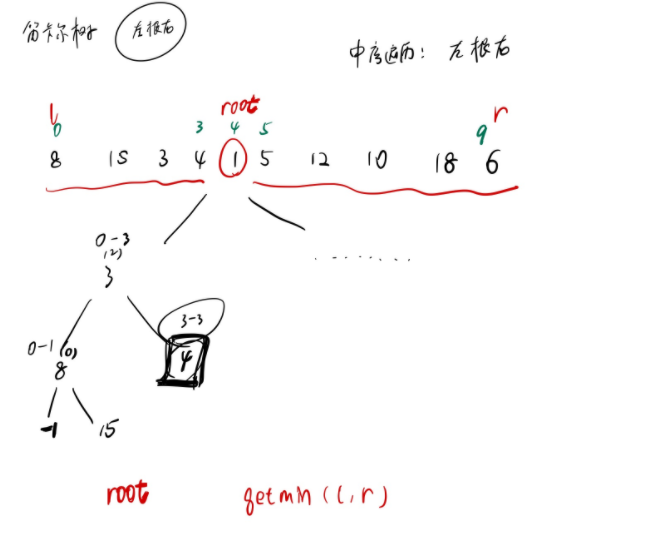 笛卡尔树 左根右
中序遍历: 左根右
l root r
0 3 4 5 9
8 15 3 4 1 5 12 10 18 6
0-3
(2)
3
3-3
4
0-1 (0)
8
-1 15
root getmin(l,r)